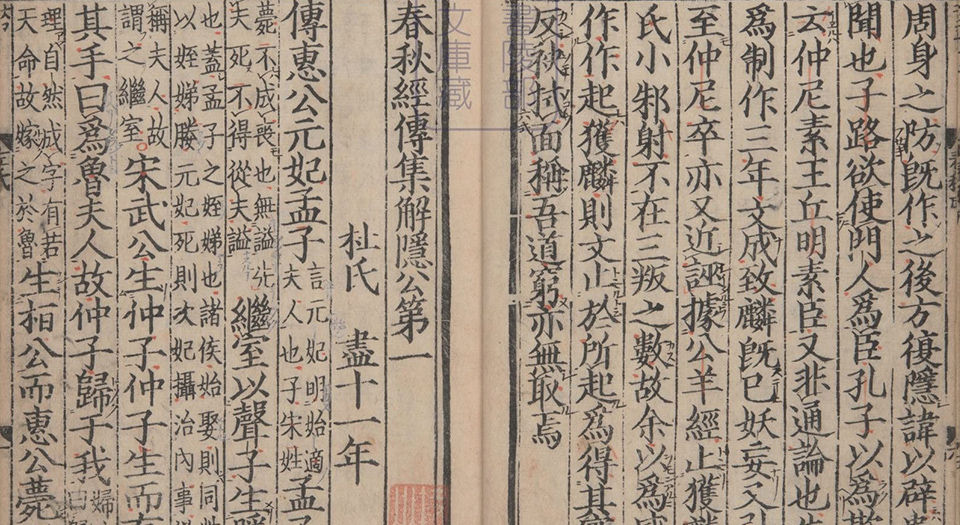 周身之防旣作之後方復隱諱以辟
聞也子路欲使門人爲臣孔子以爲欺
云仲尼素王丘明素臣又非通論也
爲制作三年文成致麟旣已妖妄又引
至仲尼卒亦又近誣據公羊經止獲麟
氏小邾射不在三叛之數故余以爲
作作起獲麟則文止於所起爲得其
反袂拭面稱吾道窮亦無取焉
春秋經傳集解隱公第一
杜氏 盡十一年
傳惠公元妃孟子 言元妃明始適夫人也子宋姓 孟子
薨不成喪也無謚先夫死不得從夫謚 繼室以聲子生隱
也蓋孟子之姪娣也諸侯始娶則同姓
以姪娣媵元妃死則次妃攝治內事
稱夫人故謂之繼室 宋武公生仲子仲子生而有
其手曰爲魯夫人故仲子歸于我 婦
理自然成字有若天命故嫁之於魯 生桓公而惠公薨
書陵部
文庫藏